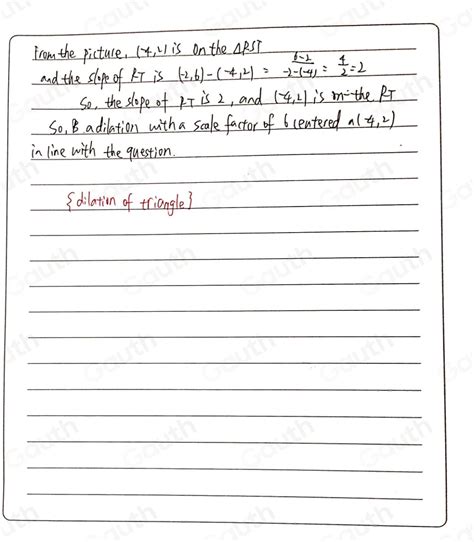 From the picture, (-4,2) is on the △RST
and the slope of RT is (-2,6)-(-4,2) = 6-2/-2-(-4) = 4/2 = 2
So, the slope of RT is 2, and (-4,2) is the RT
So, B a dilation with a scale factor of 6 centered (-4,2)
in line with the question.
{dilation of triangle}
Gauth